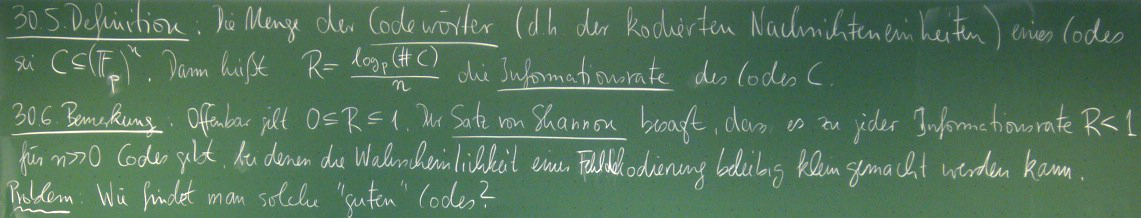 30.5. Definition: Die Menge der Codewörter (d.h. der kodierten Nachrichteneinheiten) eines Codes
sei C⊆(𝔽_p)^n. Dann heißt R = log_p(#C)/n die Informationsrate des Codes C.
30.6. Bemerkung: Offenbar gilt 0≤R≤1. Der Satz von Shannon besagt, dass es zu jeder Informationsrate R<1
für n≫0 Codes gibt, bei denen die Wahrscheinlichkeit einer Fehldekodierung beliebig klein gemacht werden kann.
Problem: Wie findet man solche "guten" Codes?